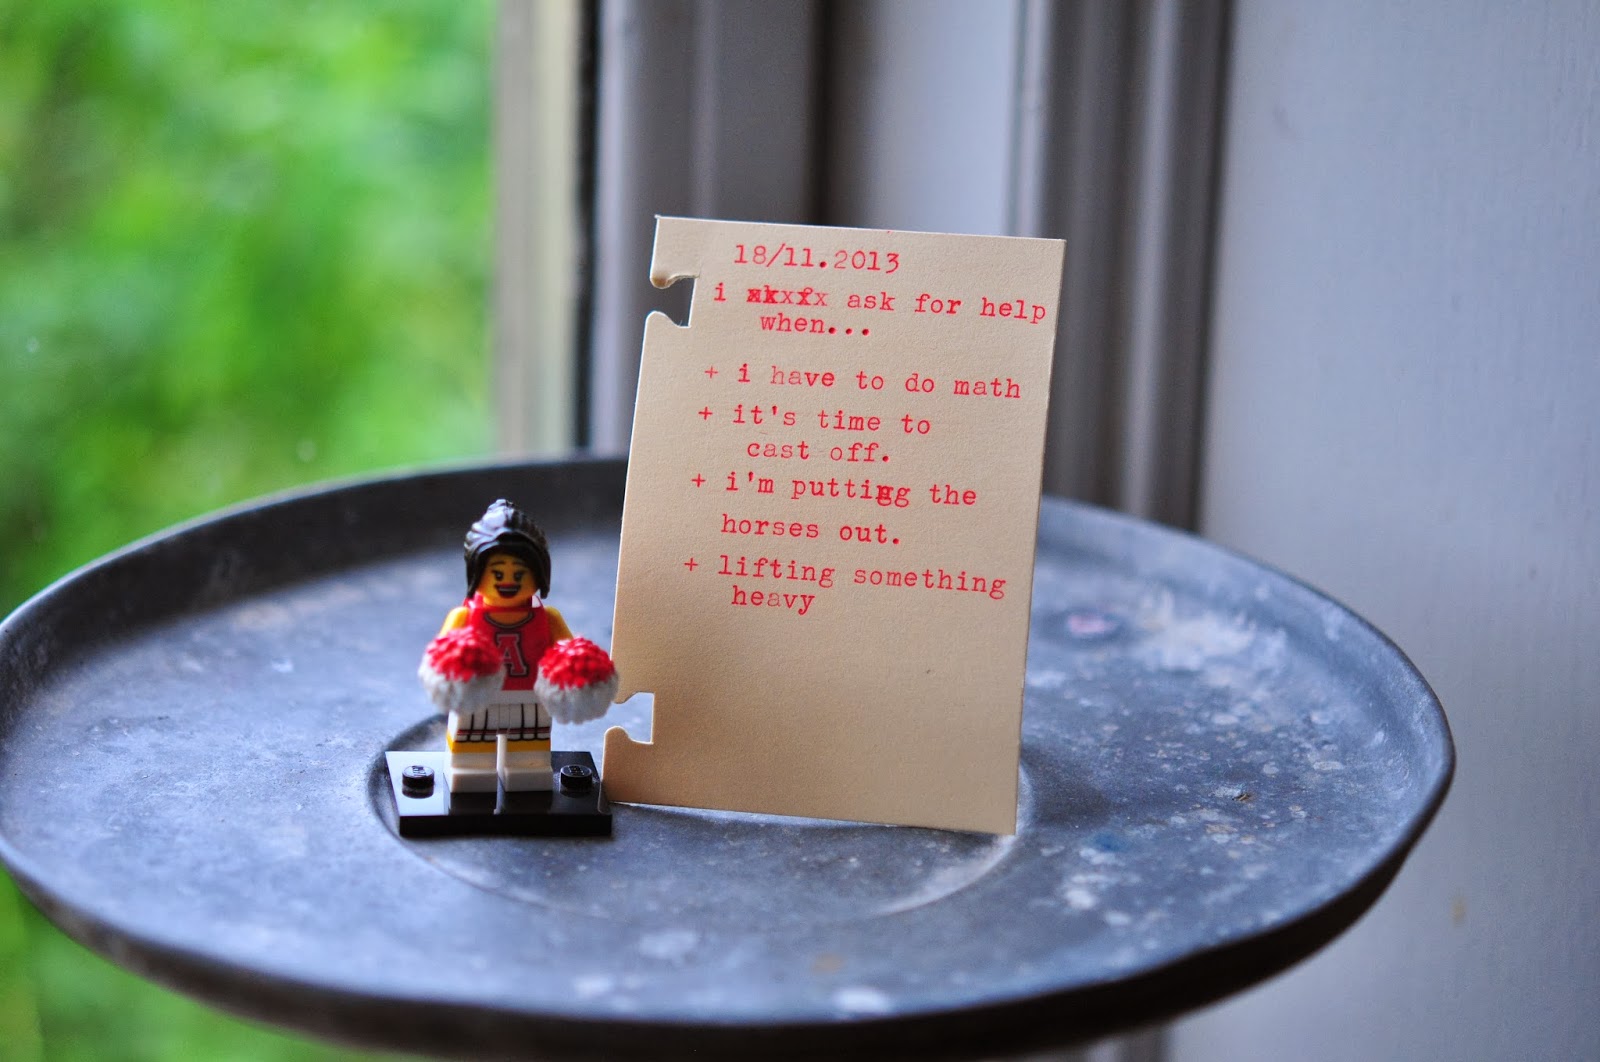 18/11.2013
i xkxfx ask for help
when...
+ i have to do math
+ it's time to
cast off.
+ i'm putting the
horses out.
+ lifting something
heavy
A